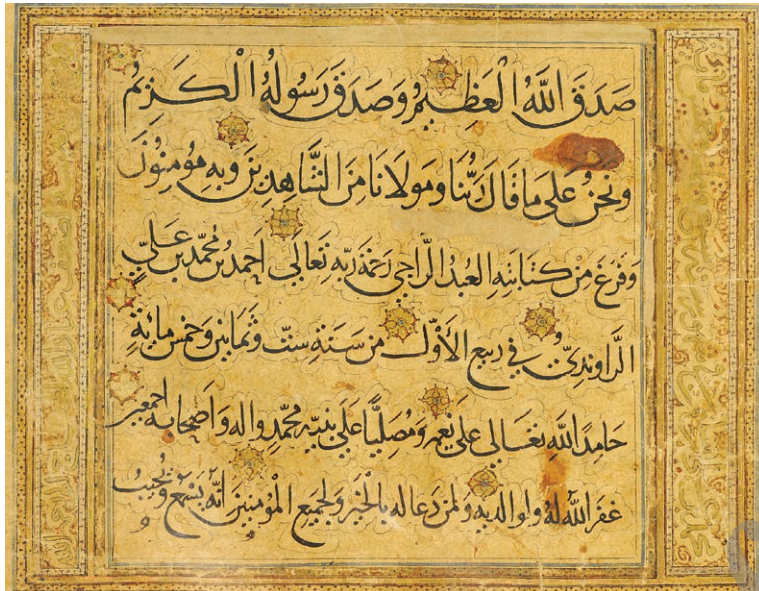 صَدَقَ اللَّهُ الْعَظِيمُ وَصَدَقَ رَسُولُهُ الْكَرِيمُ
وَنَحْنُ عَلَى مَا قَالَ رَبُّنَا وَمَوْلَانَا مِنَ الشَّاهِدِينَ وَبِهِ مُؤْمِنُونَ
وَفَرَغَ مِنْ كِتَابَتِهِ الْعَبْدُ الرَّاجِي رَحْمَةَ رَبِّهِ تَعَالَى أَحْمَدُ بْنُ مُحَمَّدِ بْنِ عَلِيٍّ
الرَّاوَنْدِيُّ فِي رَبِيعِ الْأَوَّلِ مِنْ سَنَةِ سِتٍّ وَثَمَانِينَ وَخَمْسِ مِائَةٍ
حَامِدًا لِلَّهِ تَعَالَى عَلَى نِعَمِهِ وَمُصَلِّيًا عَلَى نَبِيِّهِ مُحَمَّدٍ وَالِهِ وَأَصْحَابِهِ أَجْمَعِينَ
غَفَرَ اللَّهُ لَهُ وَلِوَالِدَيْهِ وَلِمَنْ دَعَا لَهُ بِالْخَيْرِ وَلِجَمِيعِ الْمُؤْمِنِينَ إِنَّهُ يَسْمَعُ وَيُجِيبُ